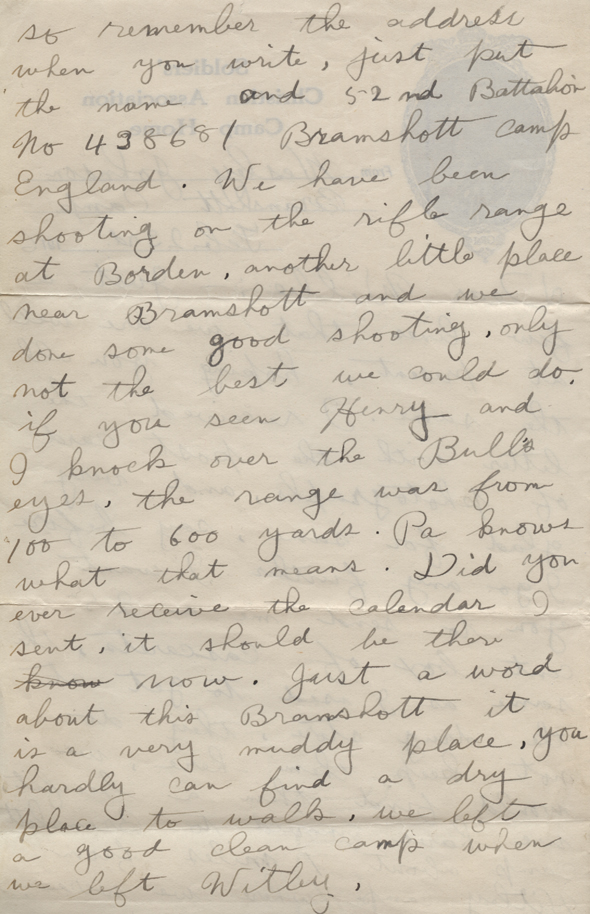 so remember the address
when you write, just put
the name and 52nd Battalion
No 438681 Bramshott camp
England. We have been
shooting on the rifle range
at Borden, another little place
near Bramshott and we
done some good shooting, only
not the best we could do.
if you seen Henry and
I knock over the Bulls
eyes, the range was from
100 to 600 yards. Pa knows
what that means. Did you
ever receive the calendar I
sent, it should be there
know now. Just a word
about this Bramshott it
is a very muddy place, you
hardly can find a dry
place to walk, we left
a good clean camp when
we left Witley,